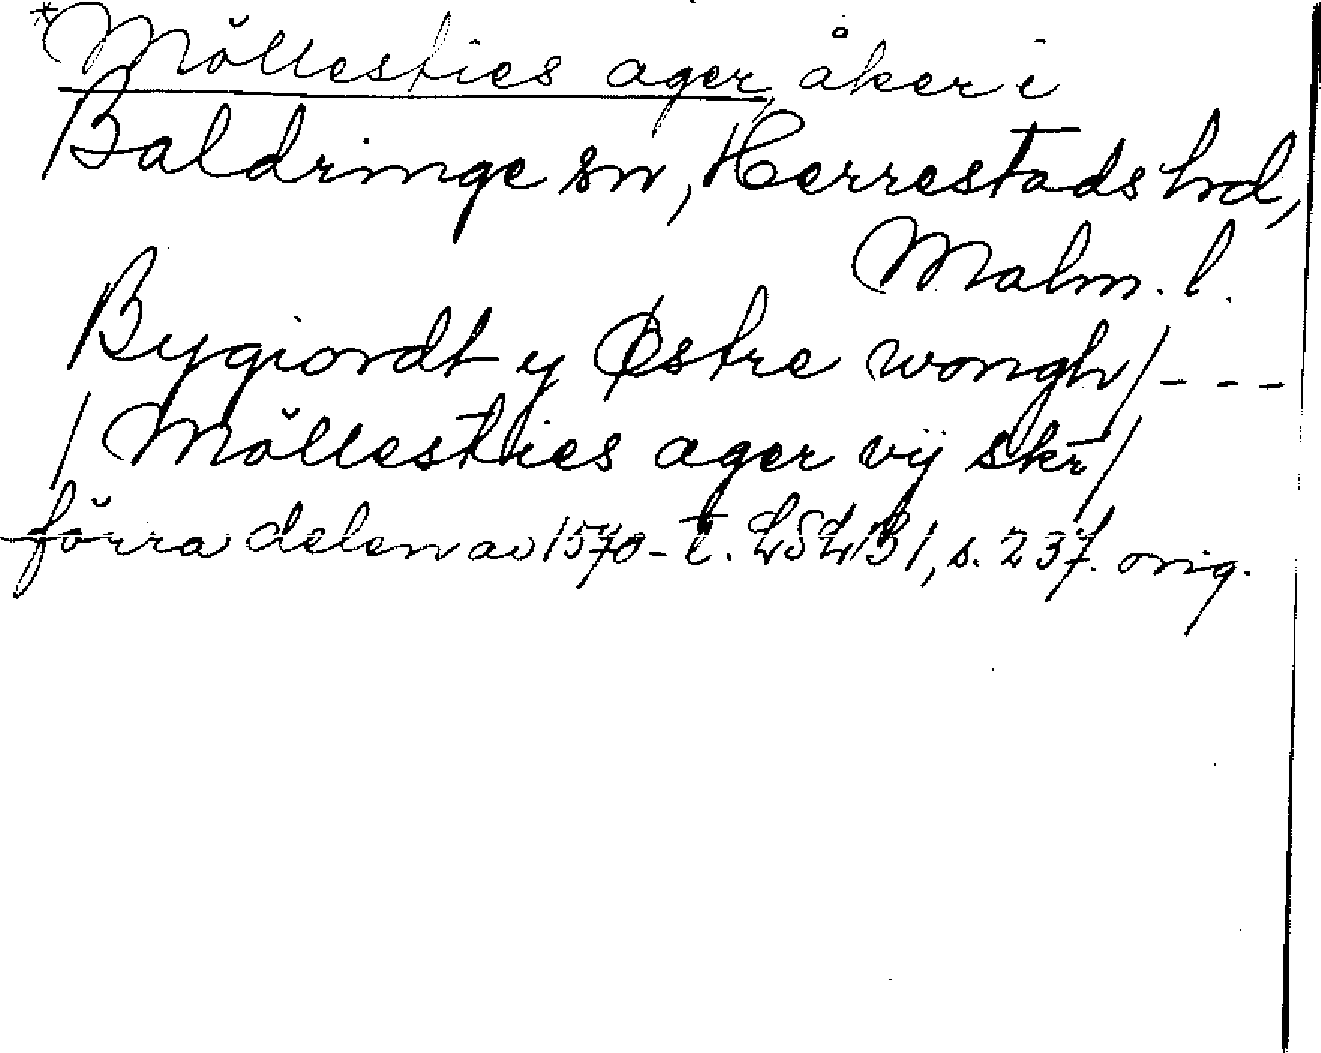 *Möllesties ager, åker i
Baldringe sn, Herrestads hd,
Malm. l.
Bygiordt y Østre wongh/---
/Möllesties ager vij skr̄/
förra delen av 1570-t. LSLB1, s. 237. orig.